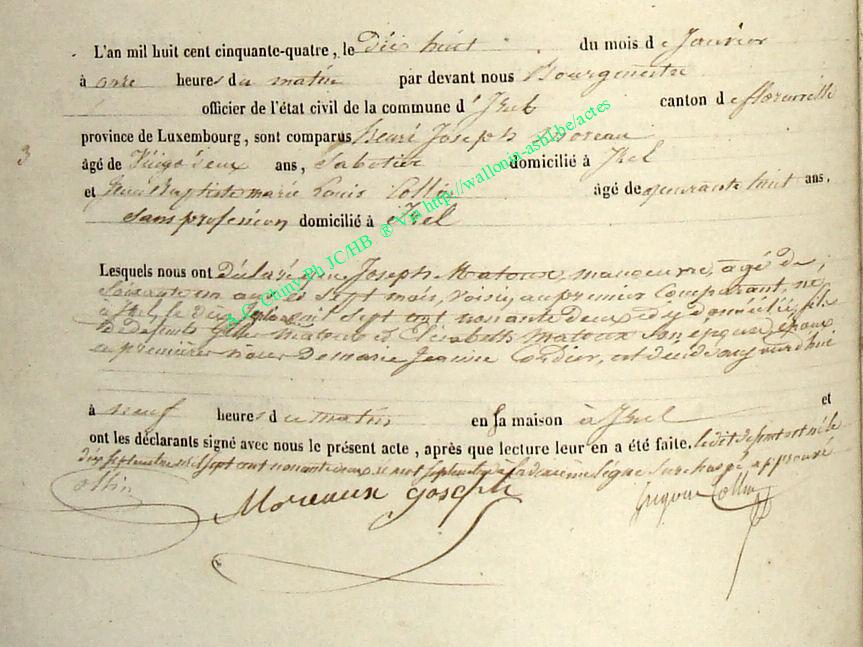 L'an mil huit cent cinquante-quatre, le Dix huit du mois de Janvier
à onze heures du matin par devant nous Bourgmestre
officier de l'état civil de la commune d'Izel canton de florenville
province de Luxembourg, sont comparus henri Joseph Moreau
3
âgé de Vingt deux ans, Sabotier domicilié à Izel
et Jean Baptiste marie Louis Collin âgé de quarante huit ans.
Sans profession domicilié à Izel
Lesquels nous ont Déclaré que Joseph Matoux, manœuvre, agé de
Soixante un ans et Sept mois, Voisin au premier Comparant, né
à Izel, le dix mil Sept cent nonante Deux et y domicilié, fils
de Defunts et Elisabeth Matoux Son epouse, epoux
en premières noces De marie Jeanne Cordier, est decedé aujourd'hui
à neuf heures du matin en sa maison à Izel et
ont les déclarants signé avec nous le présent acte, après que lecture leur en a été faite. le dit defunt est né le
dix Septembre mil Sept cent nonante deux le mot Septembre à la ligne Surchargé, approuvé
Collin
Moreaux Joseph
Collin
A.G. Cluny Ph JC/HB ® Via http://wallonia-asbl.be/actes